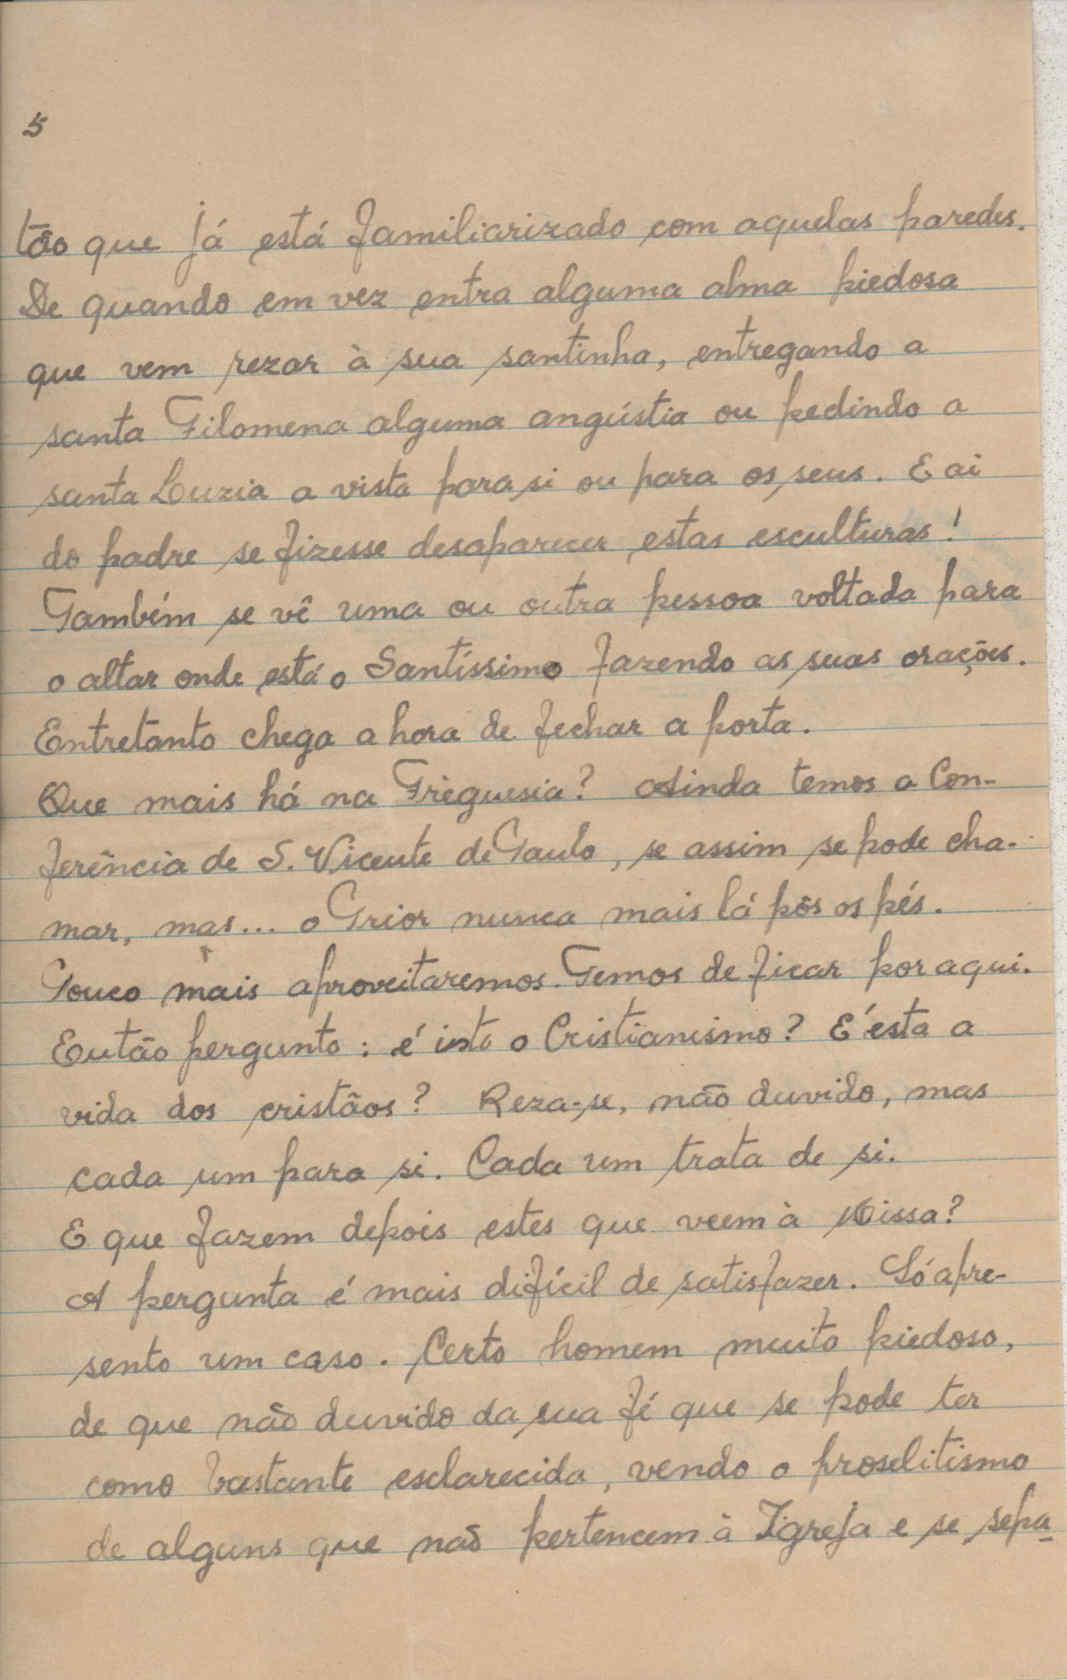 5
tão que já está familiarizado com aquelas paredes.
De quando em vez entra alguma alma piedosa
que vem rezar à sua santinha, entregando a
santa Filomena alguma angústia ou pedindo a
santa Luzia a vista para si ou para os seus. E ai
do padre se fizesse desaparecer estas esculturas!
Também se vê uma ou outra pessoa voltada para
o altar onde está o Santíssimo fazendo as suas orações.
Entretanto chega a hora de fechar a porta.
Que mais há na Freguesia? Ainda temos a Con-
ferência de S. Vicente de Paulo, se assim se pode cha-
mar, mas... o Prior nunca mais lá pôs os pés.
Pouco mais aproveitaremos. Temos de ficar por aqui.
Então pergunto: é isto o Cristianismo? E' esta a
vida dos cristãos? Reza-se, não duvido, mas
cada um para si. Cada um trata de si.
E que fazem depois estes que veem à Missa?
A pergunta é mais difícil de satisfazer. Só apre-
sento um caso. Certo homem muito piedoso,
de que não duvido da sua fé que se pode ter
como bastante esclarecida, vendo o proselitismo
de alguns que não pertencem à Igreja e se sepa-